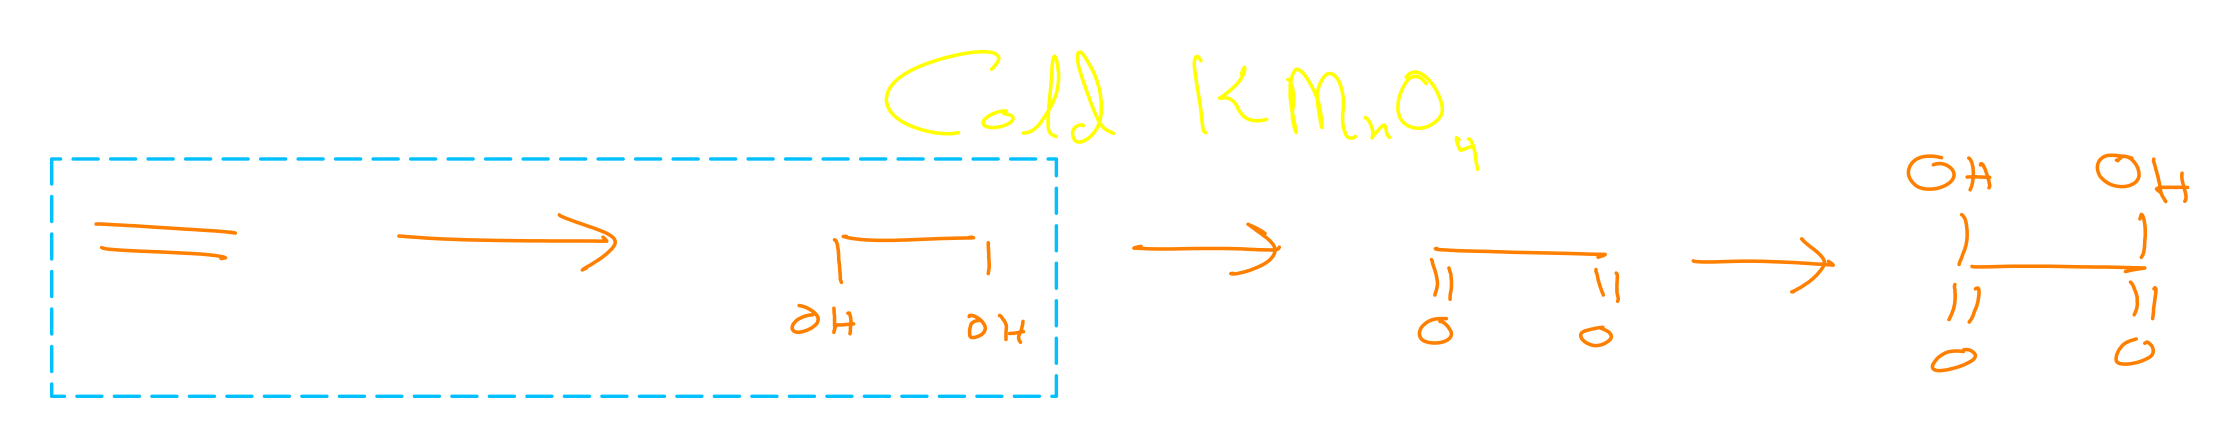 Cold KMnO4
OH OH
OH OH O O O O